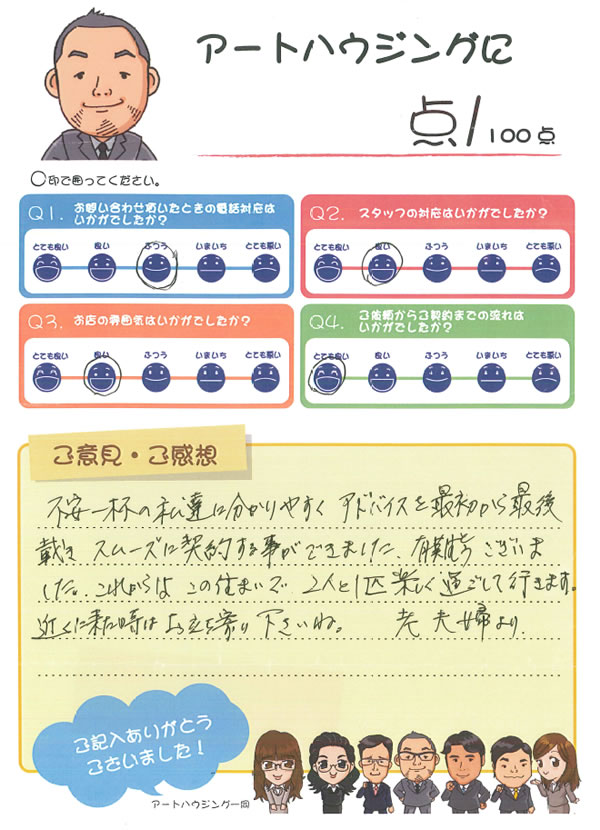 アートハウジングに
点/100点
○印で囲ってください。
Q1. お問い合わせ頂いたときの電話対応は
いかがでしたか?
とても良い 良い ふつう いまいち とても悪い
Q2. スタッフの対応はいかがでしたか?
とても良い 良い ふつう いまいち とても悪い
Q3. お店の雰囲気はいかがでしたか?
とても良い 良い ふつう いまいち とても悪い
Q4. ご依頼からご契約までの流れは
いかがでしたか?
とても良い 良い ふつう いまいち とても悪い
ご意見・ご感想
不安一杯の私達に分かりやすく アドバイスを最初から最後
戴き スムーズに契約する事ができました。有難う ございま
した。これからは この住まいで 2人と1匹 楽しく過ごして行きます。
近くに来た時は お立ち寄り下さいね。 老夫婦より
ご記入ありがとう
ございました!
アートハウジング一同